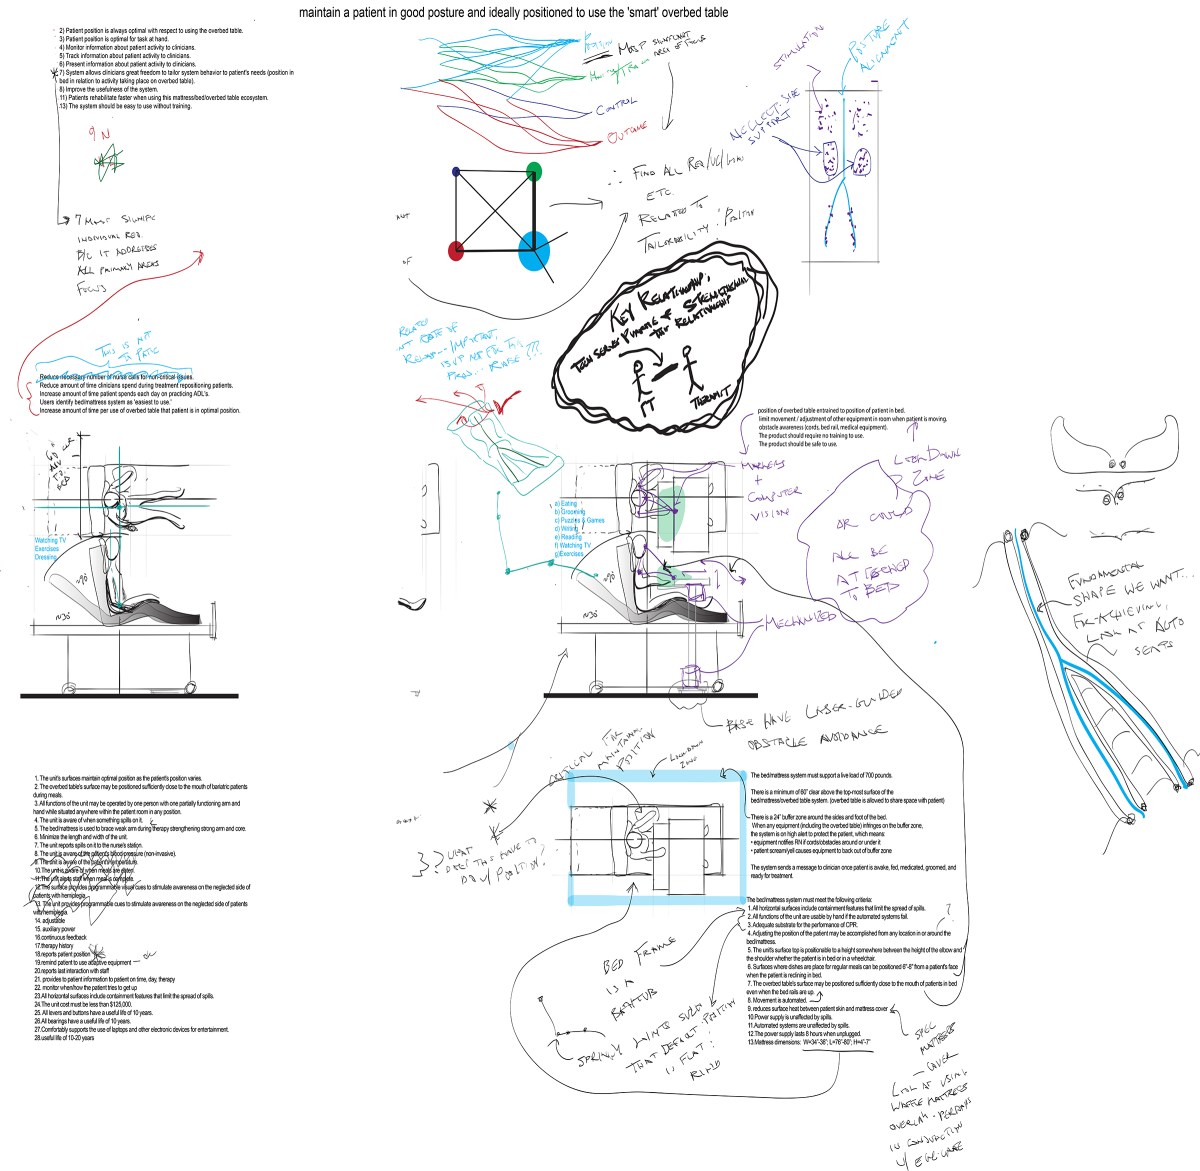 maintain a patient in good posture and ideally positioned to use the 'smart' overbed table
2) Patient position is always optimal with respect to using the overbed table.
3) Patient position is optimal for task at hand.
4) Monitor information about patient activity to clinicians.
5) Track information about patient activity to clinicians.
6) Present information about patient activity to clinicians.
7) System allows clinicians great freedom to tailor system behavior to patient's needs (position in
bed in relation to activity taking place on overbed table).
8) Improve the usefulness of the system.
11) Patients rehabilitate faster when using this mattress/bed/overbed table ecosystem.
13) The system should be easy to use without training.
9 N
7 MOST SIGNIFIC
INDIVIDUAL REQ.
B/C IT ADDRESSES
ALL PRIMARY AREAS
FOCUS
POSITION MOST SIGNIFICANT
AREA OF FOCUS
CONTROL
OUTCOME
∴ FIND ALL REQ/
ETC.
RELATED TO
TAILORABILITY : POSITION
STIMULATION
POSTURE
ALIGNMENT
NEGLECT-SIDE
SUPPORT
KEY RELATIONSHIP:
TECH SERVES PURPOSE OF STRENGTHENING
THIS RELATIONSHIP
PT
THERAPIST
THIS IS NOT
TO PATIE
Reduce necessary number of nurse calls for non-critical issues.
Reduce amount of time clinicians spend during treatment repositioning patients.
Increase amount of time patient spends each day on practicing ADL's.
Users identify bed/mattress system as 'easiest to use.'
Increase amount of time per use of overbed table that patient is in optimal position.
position of overbed table entrained to position of patient in bed.
limit movement / adjustment of other equipment in room when patient is moving.
obstacle awareness (cords, bed rail, medical equipment).
The product should require no training to use.
The product should be safe to use.
LOCKDOWN
ZONE
MARKERS
+
COMPUTER
VISION
OR COULD
ALL BE
ATTACHED
TO BED
MECHANIZED
BASE HAVE LASER-GUIDED
OBSTACLE AVOIDANCE
Watching TV
Exercises
Dressing
≈90°
≈30°
a) Eating
b) Grooming
c) Puzzles & Games
d) Writing
e) Reading
f) Watching TV
g)Exercises
≈90°
≈30°
FUNDAMENTAL
SHAPE WE WANT...
FOR ACHIEVING,
LOOK AT AUTO
SEATS
1. The unit's surfaces maintain optimal position as the patient's position varies.
2. The overbed table's surface may be positioned sufficiently close to the mouth of bariatric patients
during meals.
3. All functions of the unit may be operated by one person with one partially functioning arm and
hand while situated anywhere within the patient room in any position.
4. The unit is aware of when something spills on it.
5. The bed/mattress is used to brace weak arm during therapy strengthening strong arm and core.
6. Minimize the length and width of the unit.
7. The unit reports spills on it to the nurse's station.
8. The unit is aware of the patient's blood pressure (non-invasive).
9. The unit is aware of the patient's temperature.
10. The unit is aware of when meals are eaten.
11. The unit alerts staff when meal is complete.
12. The surface provides programmable visual cues to stimulate awareness on the neglected side of
patients with hemiplegia.
13. The unit provides programmable cues to stimulate awareness on the neglected side of patients
with hemiplegia.
14. adjustable
15. auxiliary power
16.continuous feedback
17.therapy history
18.reports patient position
19.remind patient to use adaptive equipment
20.reports last interaction with staff
21. provides to patient information to patient on time, day, therapy
22. monitor when/how the patient tries to get up
23.All horizontal surfaces include containment features that limit the spread of spills.
24.The unit cost must be less than $125,000.
25. All levers and buttons have a useful life of 10 years.
26.All bearings have a useful life of 10 years.
27.Comfortably supports the use of laptops and other electronic devices for entertainment.
28.useful life of 10-20 years
CRITICAL FOR
MAINTAINING
POSITION
LOCKDOWN
ZONE
WHAT
DOES THIS HAVE TO
DO W/ POSITION?
The bed/mattress system must support a live load of 700 pounds.
There is a minimum of 60" clear above the top-most surface of the
bed/mattress/overbed table system. (overbed table is allowed to share space with patient)
There is a 24" buffer zone around the sides and foot of the bed.
When any equipment (including the overbed table) infringes on the buffer zone,
the system is on high alert to protect the patient, which means:
• equipment notifies RN if cords/obstacles around or under it
• patient scream/yell causes equipment to back out of buffer zone
The system sends a message to clinician once patient is awake, fed, medicated, groomed, and
ready for treatment.
The bed/mattress system must meet the following criteria:
1. All horizontal surfaces include containment features that limit the spread of spills.
2. All functions of the unit are usable by hand if the automated systems fail.
3. Adequate substrate for the performance of CPR.
4. Adjusting the position of the patient may be accomplished from any location in or around the
bed/mattress.
5. The unit's surface top is positionable to a height somewhere between the height of the elbow and
the shoulder whether the patient is in bed or in a wheelchair.
6. Surfaces where dishes are place for regular meals can be positioned 6"-8" from a patient's face
when the patient is reclining in bed.
7. The overbed table's surface may be positioned sufficiently close to the mouth of patients in bed
even when the bed rails are up.
8. Movement is automated.
9. reduces surface heat between patient skin and mattress cover
10.Power supply is unaffected by spills.
11.Automated systems are unaffected by spills.
12.The power supply lasts 8 hours when unplugged.
13.Mattress dimensions: W=34"-36"; L=76"-80"; H=4"-7"
?
BED FRAME
IS A
BATHTUB
SPRINGY JOINTS SUCH
THAT DEFAULT POSITION
IS FLAT :
RIGID
SPEC
MATTRESS
- COVER
LOOK AT USING
WAFFLE MATTRESS
OVERLAY - PERHAPS
IN CONJUNCTION
W/ EGG-CRATE